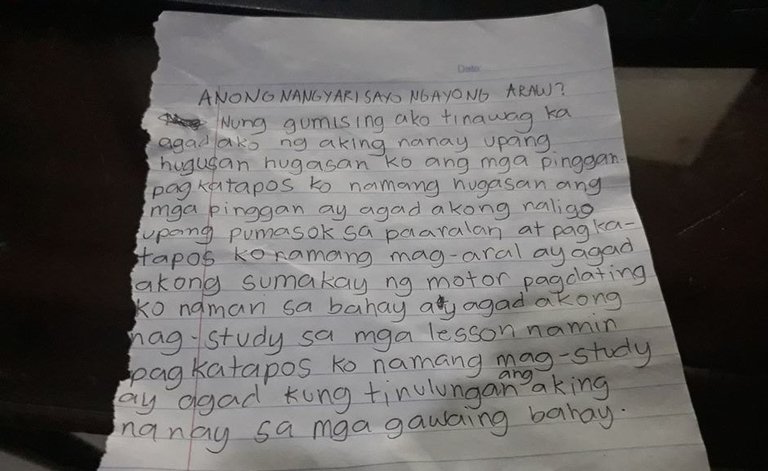 Date:
ANONG NANGYARI SAYO NGAYONG ARAW?
Nung gumising ako tinawag ka
agad ako ng aking nanay upang
hugusan hugasan ko ang mga pinggan.
pagkatapos ko namang hugasan ang
mga pinggan ay agad akong naligo
upang pumasok sa paaralan at pagka-
tapos ko namang mag-aral ay agad
akong sumakay ng motor pagdating
ko naman sa bahay ay agad akong
nag-study sa mga lesson namin
pagkatapos ko namang mag-study
ay agad kung tinulungan ang aking
nanay sa mga gawaing bahay.